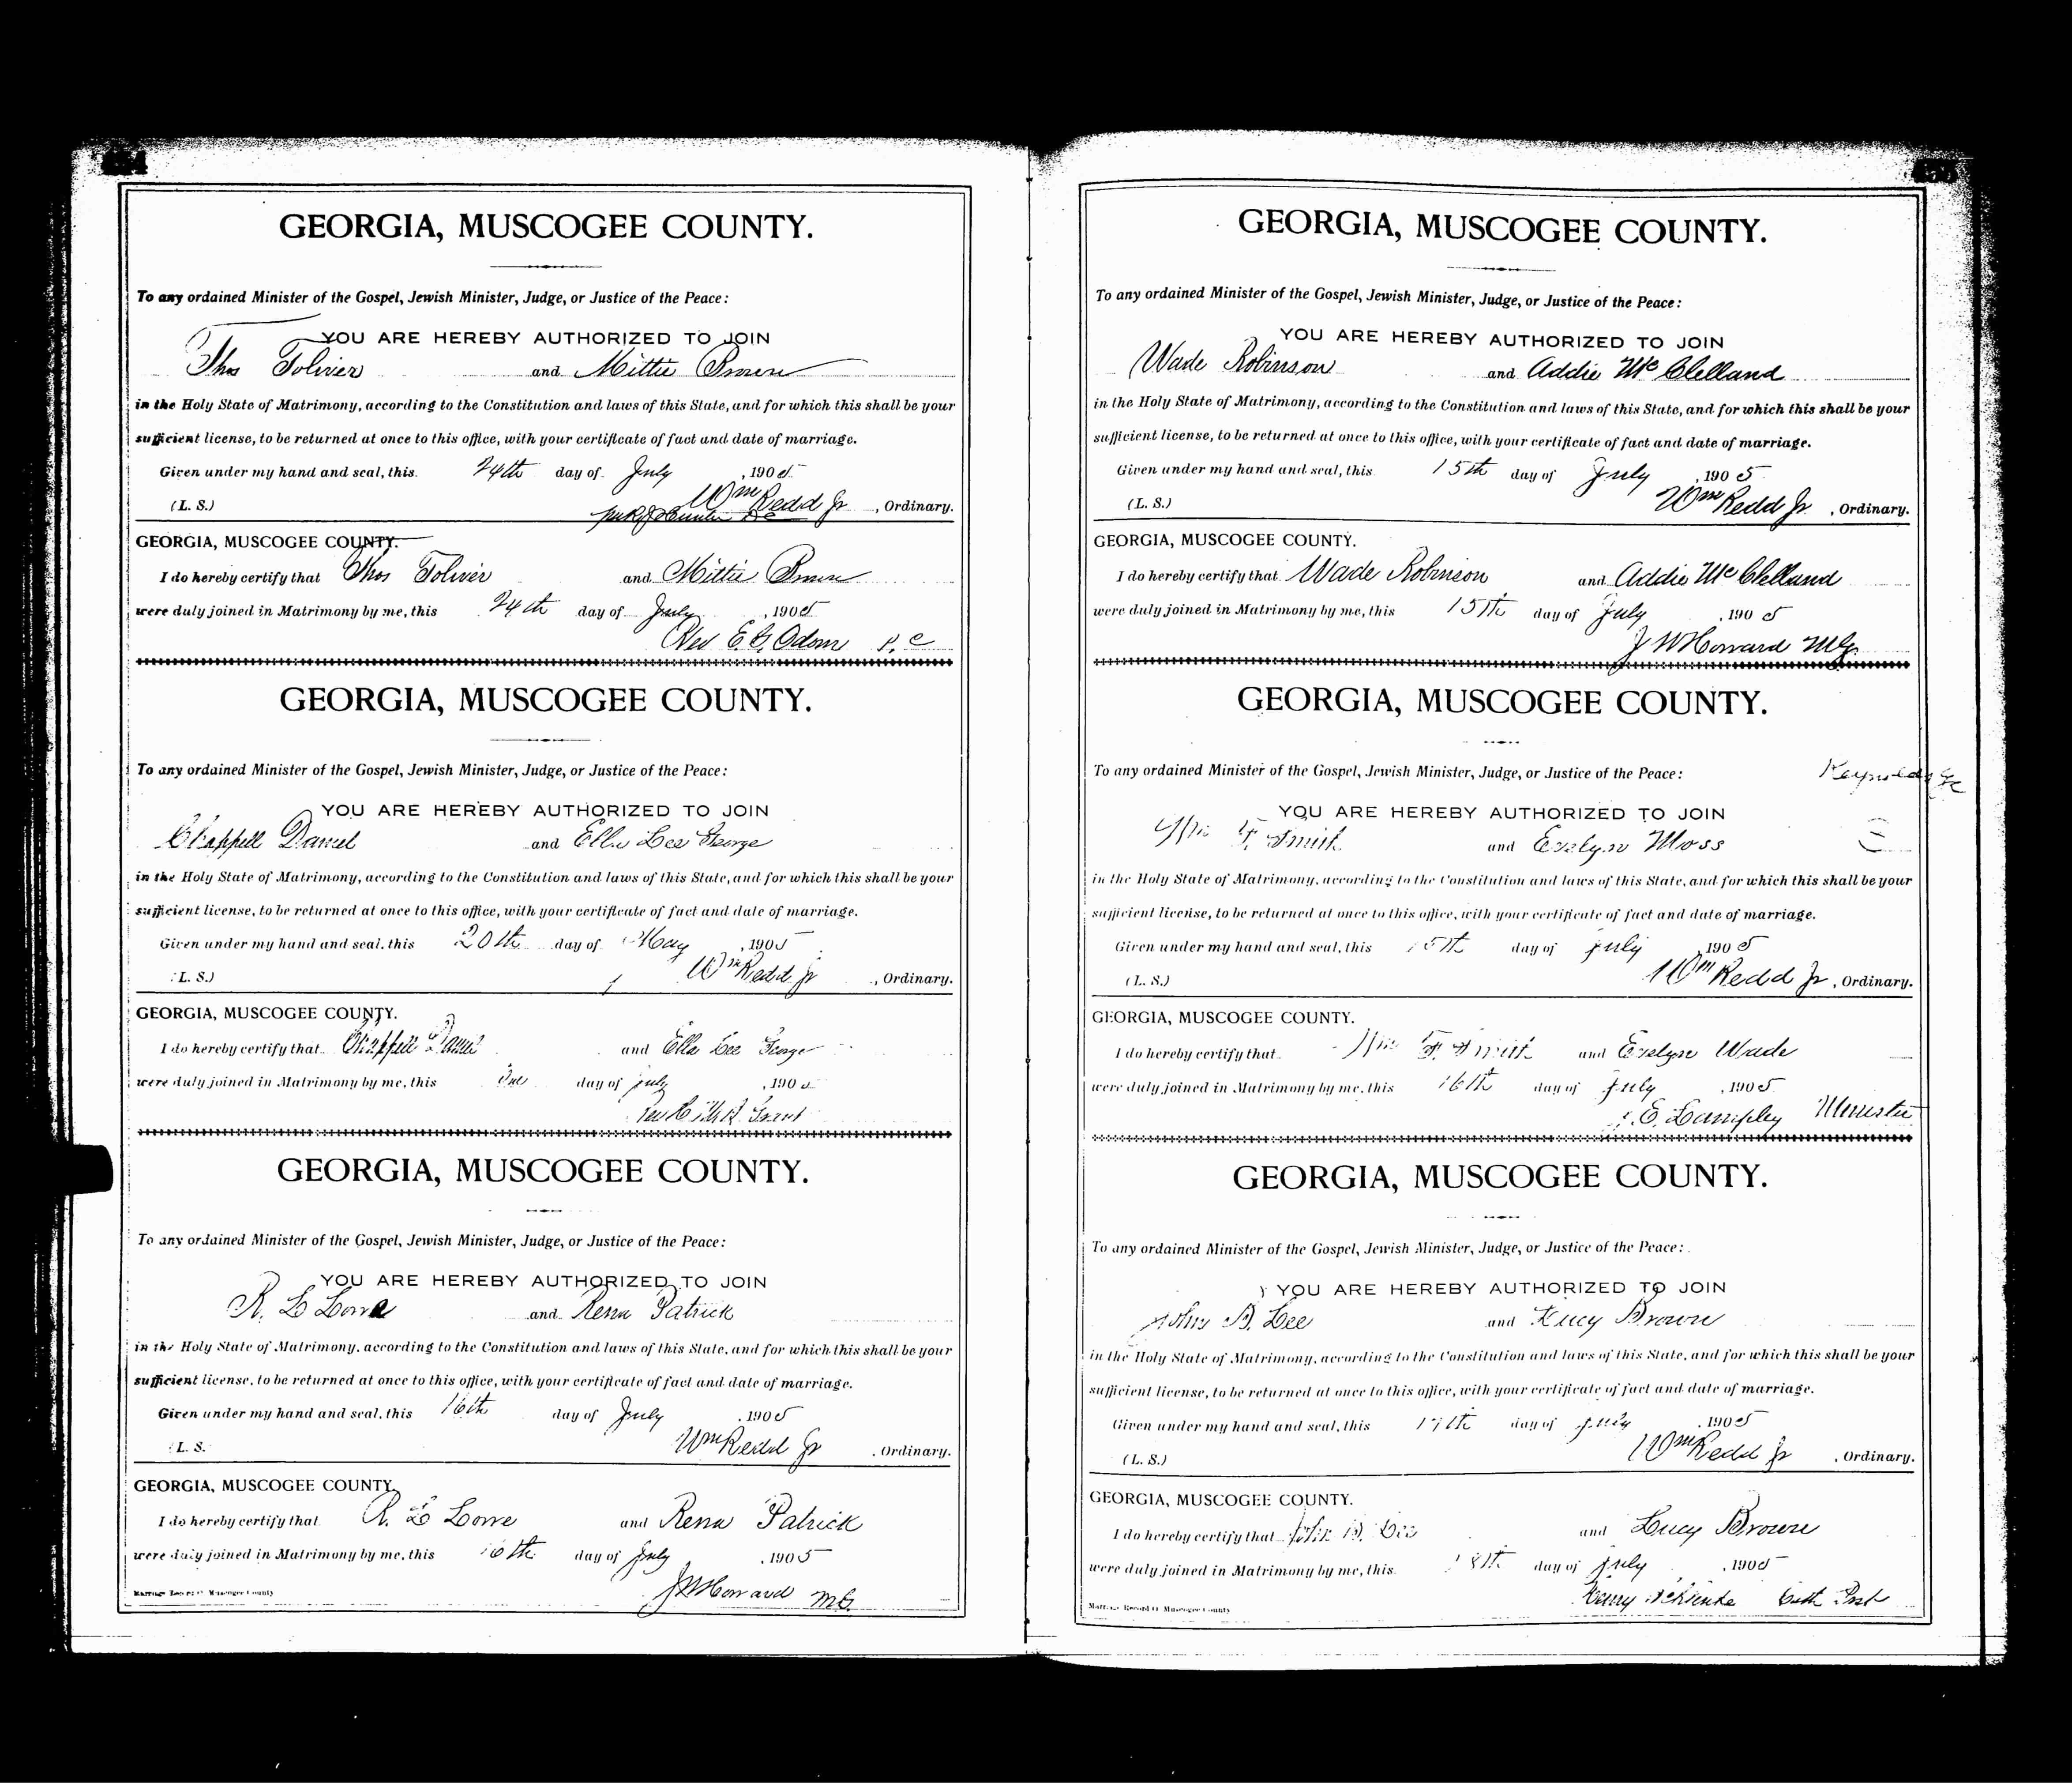 GEORGIA, MUSCOGEE COUNTY.
To any ordained Minister of the Gospel, Jewish Minister, Judge, or Justice of the Peace:
YOU ARE HEREBY AUTHORIZED TO JOIN
Thos Toliver and Mittie
in the Holy State of Matrimony, according to the Constitution and laws of this State, and for which this shall be your
sufficient license, to be returned at once to this office, with your certificate of fact and date of marriage.
Given under my hand and seal, this 24th day of July, 1905
(L. S.) Wm Redd Jr, Ordinary.
GEORGIA, MUSCOGEE COUNTY.
I do hereby certify that Thos Toliver and Mittie
were duly joined in Matrimony by me, this 24th day of July, 1905
Rev E. G. Odom P. C
GEORGIA, MUSCOGEE COUNTY.
To any ordained Minister of the Gospel, Jewish Minister, Judge, or Justice of the Peace:
YOU ARE HEREBY AUTHORIZED TO JOIN
Chappell Daniel and Ella Lee George
in the Holy State of Matrimony, according to the Constitution and laws of this State, and for which this shall be your
sufficient license, to be returned at once to this office, with your certificate of fact and date of marriage.
Given under my hand and seal, this 20th day of May, 1905
(L. S.) Wm Redd Jr, Ordinary.
GEORGIA, MUSCOGEE COUNTY.
I do hereby certify that Chappell Daniel and Ella Lee George
were duly joined in Matrimony by me, this day of July, 190
Grant
GEORGIA, MUSCOGEE COUNTY.
To any ordained Minister of the Gospel, Jewish Minister, Judge, or Justice of the Peace:
YOU ARE HEREBY AUTHORIZED TO JOIN
R. L Lowe and Rena Patrick
in the Holy State of Matrimony, according to the Constitution and laws of this State, and for which this shall be your
sufficient license, to be returned at once to this office, with your certificate of fact and date of marriage.
Given under my hand and seal, this 16th day of July, 1905
(L. S. Wm Redd Jr, Ordinary.
GEORGIA, MUSCOGEE COUNTY.
I do hereby certify that R. L Lowe and Rena Patrick
were duly joined in Matrimony by me, this 16th day of July, 1905
J W Howard M.G.
Muscogee County
GEORGIA, MUSCOGEE COUNTY.
To any ordained Minister of the Gospel, Jewish Minister, Judge, or Justice of the Peace:
YOU ARE HEREBY AUTHORIZED TO JOIN
Wade Robinson and Addie McClelland
in the Holy State of Matrimony, according to the Constitution and laws of this State, and for which this shall be your
sufficient license, to be returned at once to this office, with your certificate of fact and date of marriage.
Given under my hand and seal, this 15th day of July, 1905
(L. S.) Wm Redd Jr, Ordinary.
GEORGIA, MUSCOGEE COUNTY.
I do hereby certify that Wade Robinson and Addie McClelland
were duly joined in Matrimony by me, this 15th day of July, 1905
J W Howard M.G.
GEORGIA, MUSCOGEE COUNTY.
To any ordained Minister of the Gospel, Jewish Minister, Judge, or Justice of the Peace: Reynolds
YOU ARE HEREBY AUTHORIZED TO JOIN
Wm F. Smith and Evelyn Moss
in the Holy State of Matrimony, according to the Constitution and laws of this State, and for which this shall be your
sufficient license, to be returned at once to this office, with your certificate of fact and date of marriage.
Given under my hand and seal, this 15th day of July, 1905
(L. S.) Wm Redd Jr, Ordinary.
GEORGIA, MUSCOGEE COUNTY.
I do hereby certify that Wm F. Smith and Evelyn Wade
were duly joined in Matrimony by me, this 16th day of July, 1905
E. Lampley Minister
GEORGIA, MUSCOGEE COUNTY.
To any ordained Minister of the Gospel, Jewish Minister, Judge, or Justice of the Peace:
YOU ARE HEREBY AUTHORIZED TO JOIN
John B. Lee and Lucy Brown
in the Holy State of Matrimony, according to the Constitution and laws of this State, and for which this shall be your
sufficient license, to be returned at once to this office, with your certificate of fact and date of marriage.
Given under my hand and seal, this 17th day of July, 1905
(L. S.) Wm Redd Jr, Ordinary.
GEORGIA, MUSCOGEE COUNTY.
I do hereby certify that John B. Lee and Lucy Brown
were duly joined in Matrimony by me, this 18th day of July, 1905
Henry Cath Prst
Muscogee County